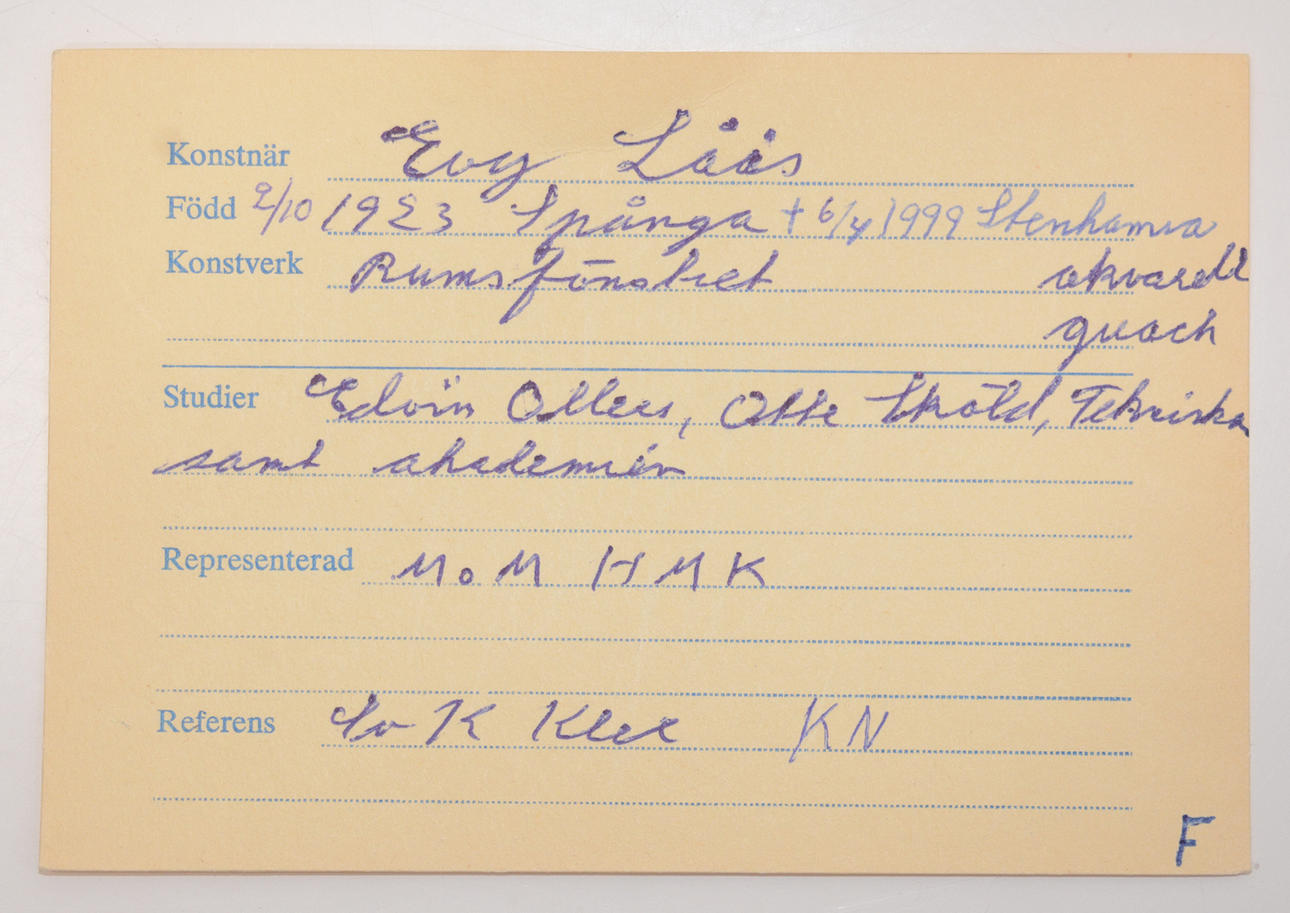 Konstnär Evy Låås
Född 9/10 1923 Spånga + 6/4 1999 Stenhamra
Konstverk Rumsfönstret akvarell
guach
Studier Edvin Ollers, Otte Sköld, Tekniska
samt akademien
Representerad MoM HMK
Referens Sv K Klex KN
F